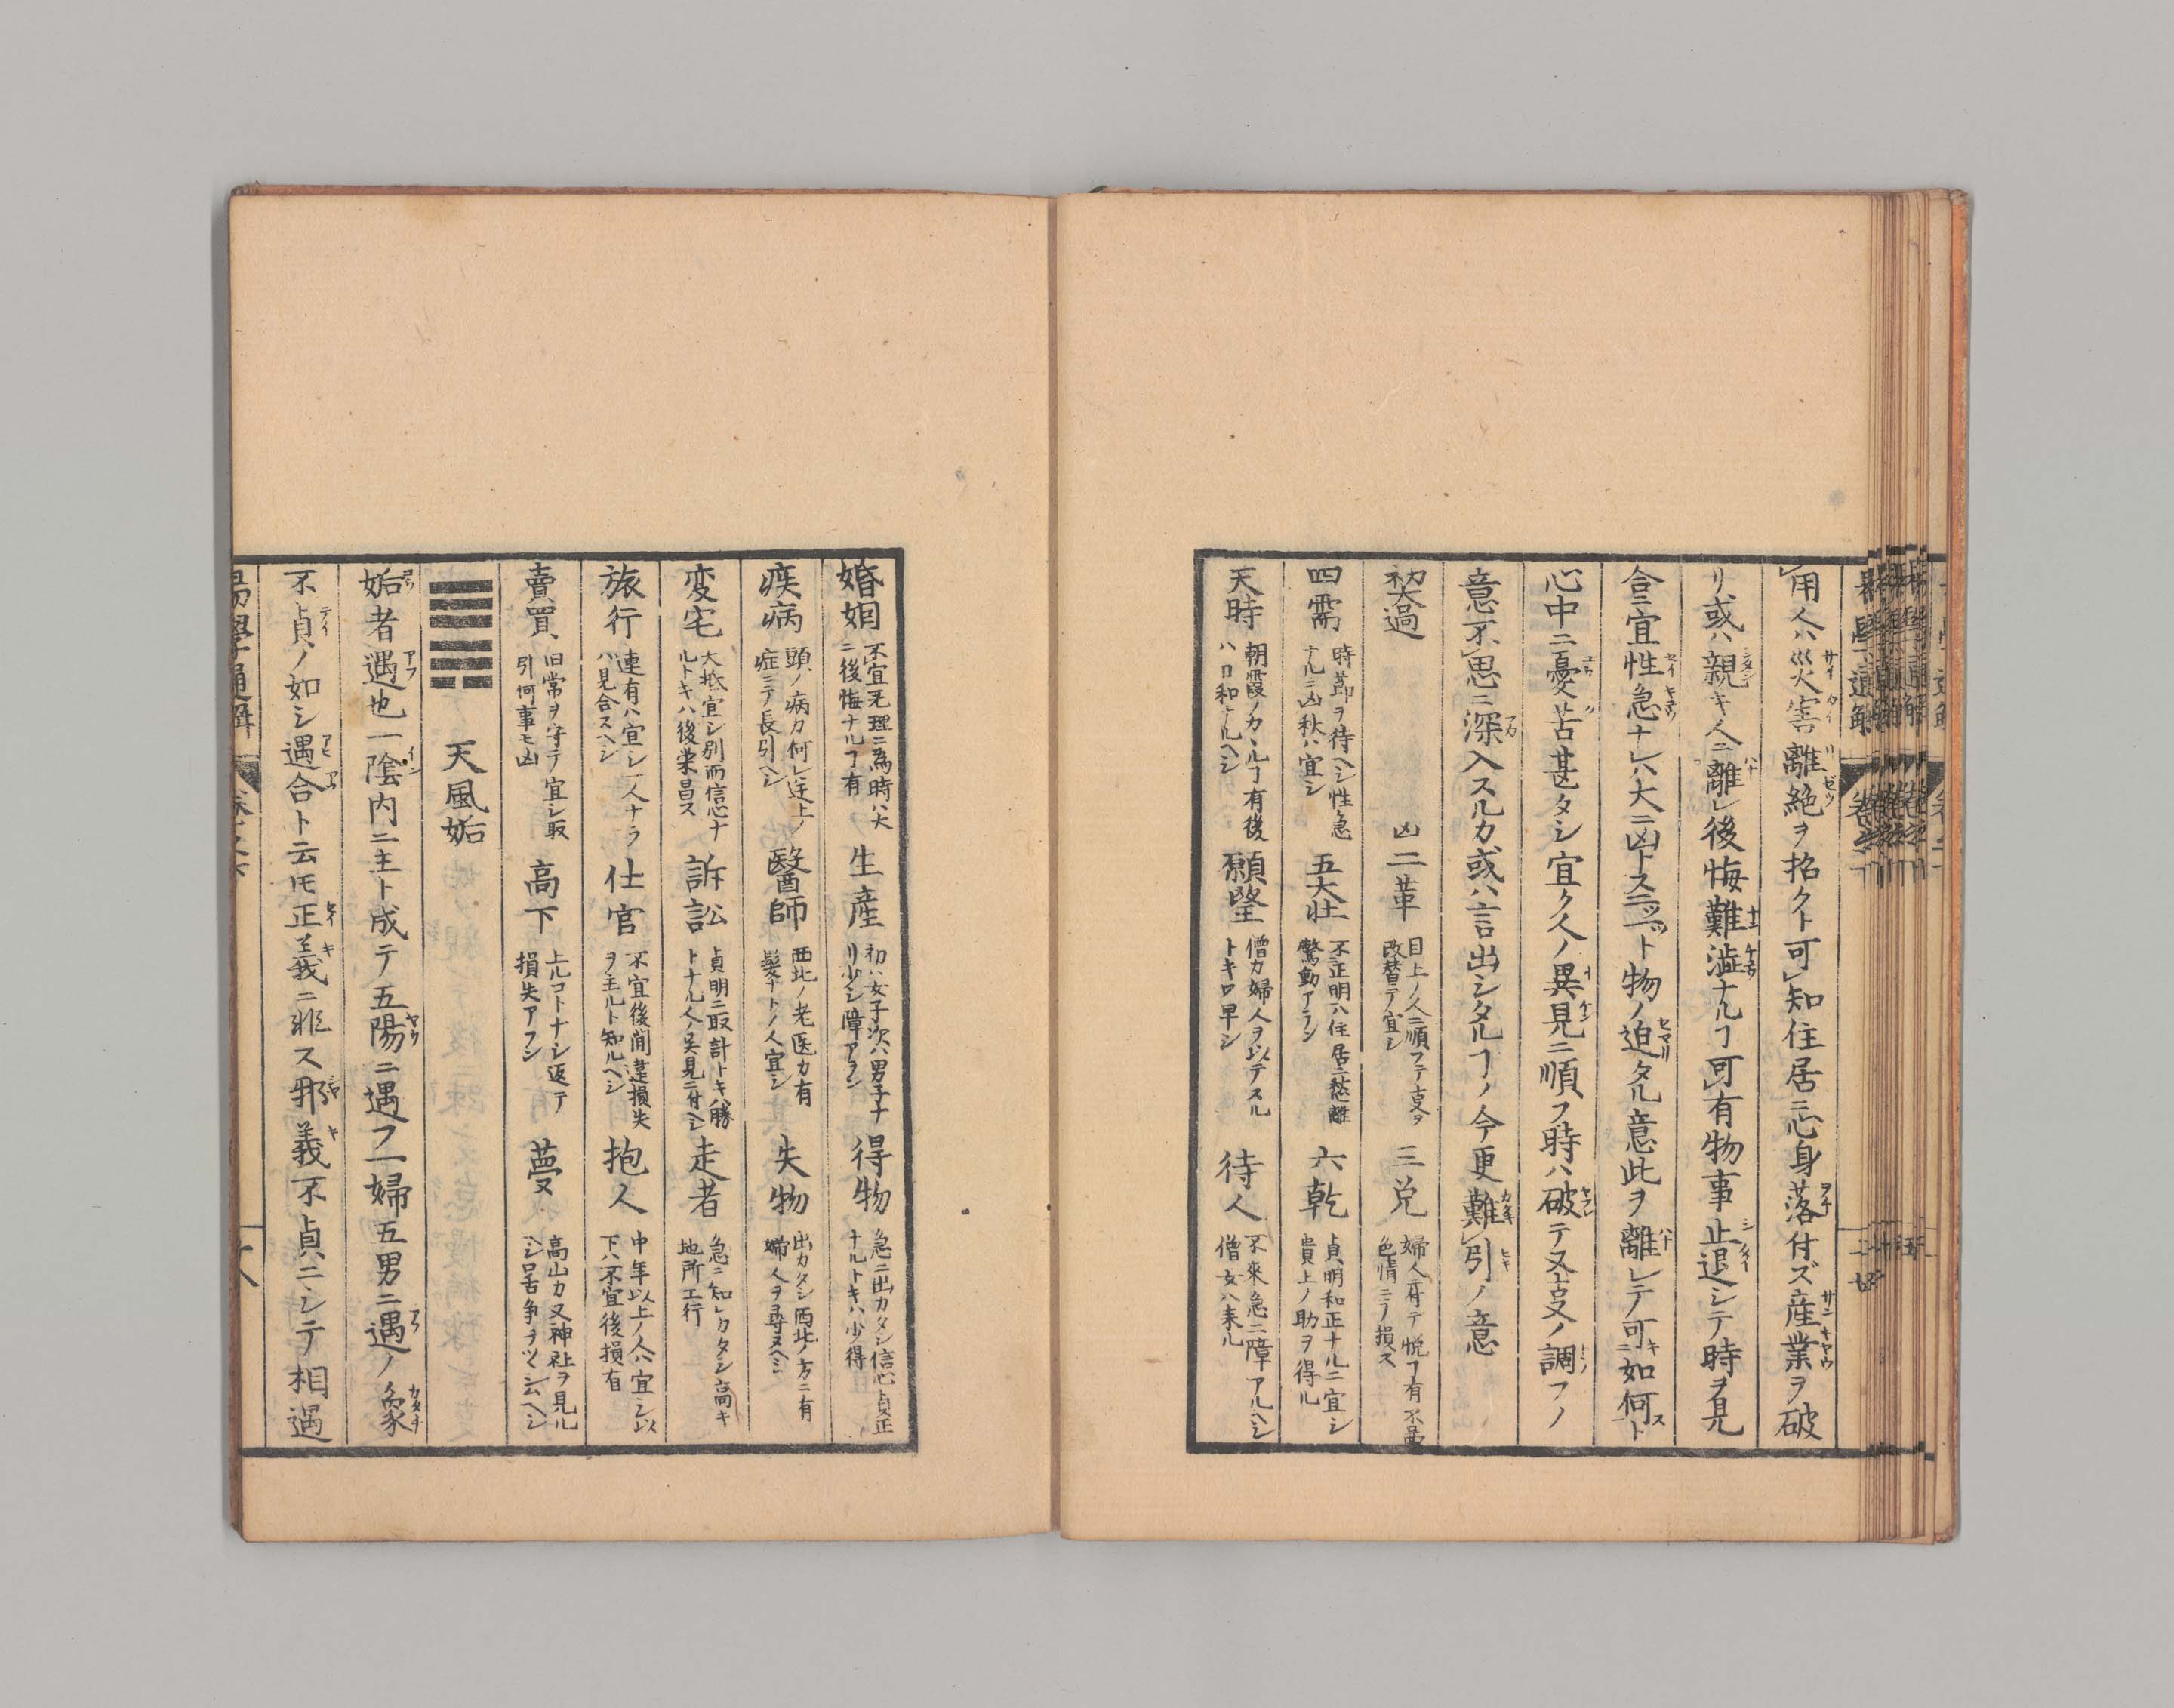 用人ハ災害離絶ヲ招クト可知住居ニ心身落付ズ産業ヲ破
リ或ハ親キ人ニ離レ後悔難澁ナルヿ可有物事止退シテ時ヲ見
合ニ宜性急ナレハ大ニ凶トス二ツト物ノ迫タル意此ヲ離レテ可如何ト
心中ニ憂苦甚タシ宜ク人ノ異見ニ順フ時ハ破テ又亥ノ調フノ
意不思ニ深入スルカ或ハ言出シタルヿノ今更難引ノ意
初夬過 凶 二革 目上ノ人ニ順フテ事ヲ改替テ宜シ 三兌 婦人ニ付テ悦ヿ有
色情ニテ損ス
四需 時節ヲ待ヘシ性急ナルニ凶秋ハ宜シ 五大壮 不正明ハ住居ニ愁離驚動アラン 六乾 貞明和正ナルニ宜シ貴上ノ助ヲ得ル
天時 朝霞ノカヽルヿ有後ハ日和ナルヘシ 願望 僧カ婦人ヲ以テスルトキハ早シ 待人 不來急ニ障アルヘシ僧女ハ来ル
婚姻 不宜無理ニ為時ハ大ニ後悔ナルヿ有 生産 初ハ女子次ハ男子ナリ少シ障アラン 得物 急ニ出カタシ信心貞正ナルトキハ少得
疾病 頭ノ病カ何レ逆上ノ症ニテ長引ヘシ 醫師 西北ノ老医カ有髪ナトノ人宜シ 失物 出カタシ西北ノ方ニ有婦人ヲ尋ヌヘシ
変宅 大抵宜シ別而信心ナルトキハ後栄昌ス 訴訟 貞明ニ取計トキ勝トナル人ノ異見ニ付ヘシ 走者 急ニ知レカタシ高キ地所エ行
旅行 連有ハ宜シ一人ナラハ見合スヘシ 仕官 不宜後間違損失ヲ主ルト知ルヘシ 抱人 中年以上ノ人ハ宜シ以下ハ不宜後損有
賣買 旧常ヲ守テ宜シ取引何事モ凶 高下 上ルコトナシ返テ損失アラン 夢 高山カ又神社ヲ見ルヘシ口舌争ヲツヽシムヘシ
天風姤
姤者遇也一陰内ニ主ト成テ五陽ニ遇フ一婦五男ニ遇ノ象
不貞ノ如シ遇合ト云圧正義ニ非ス邪義不貞ニシテ相遇
易學通解